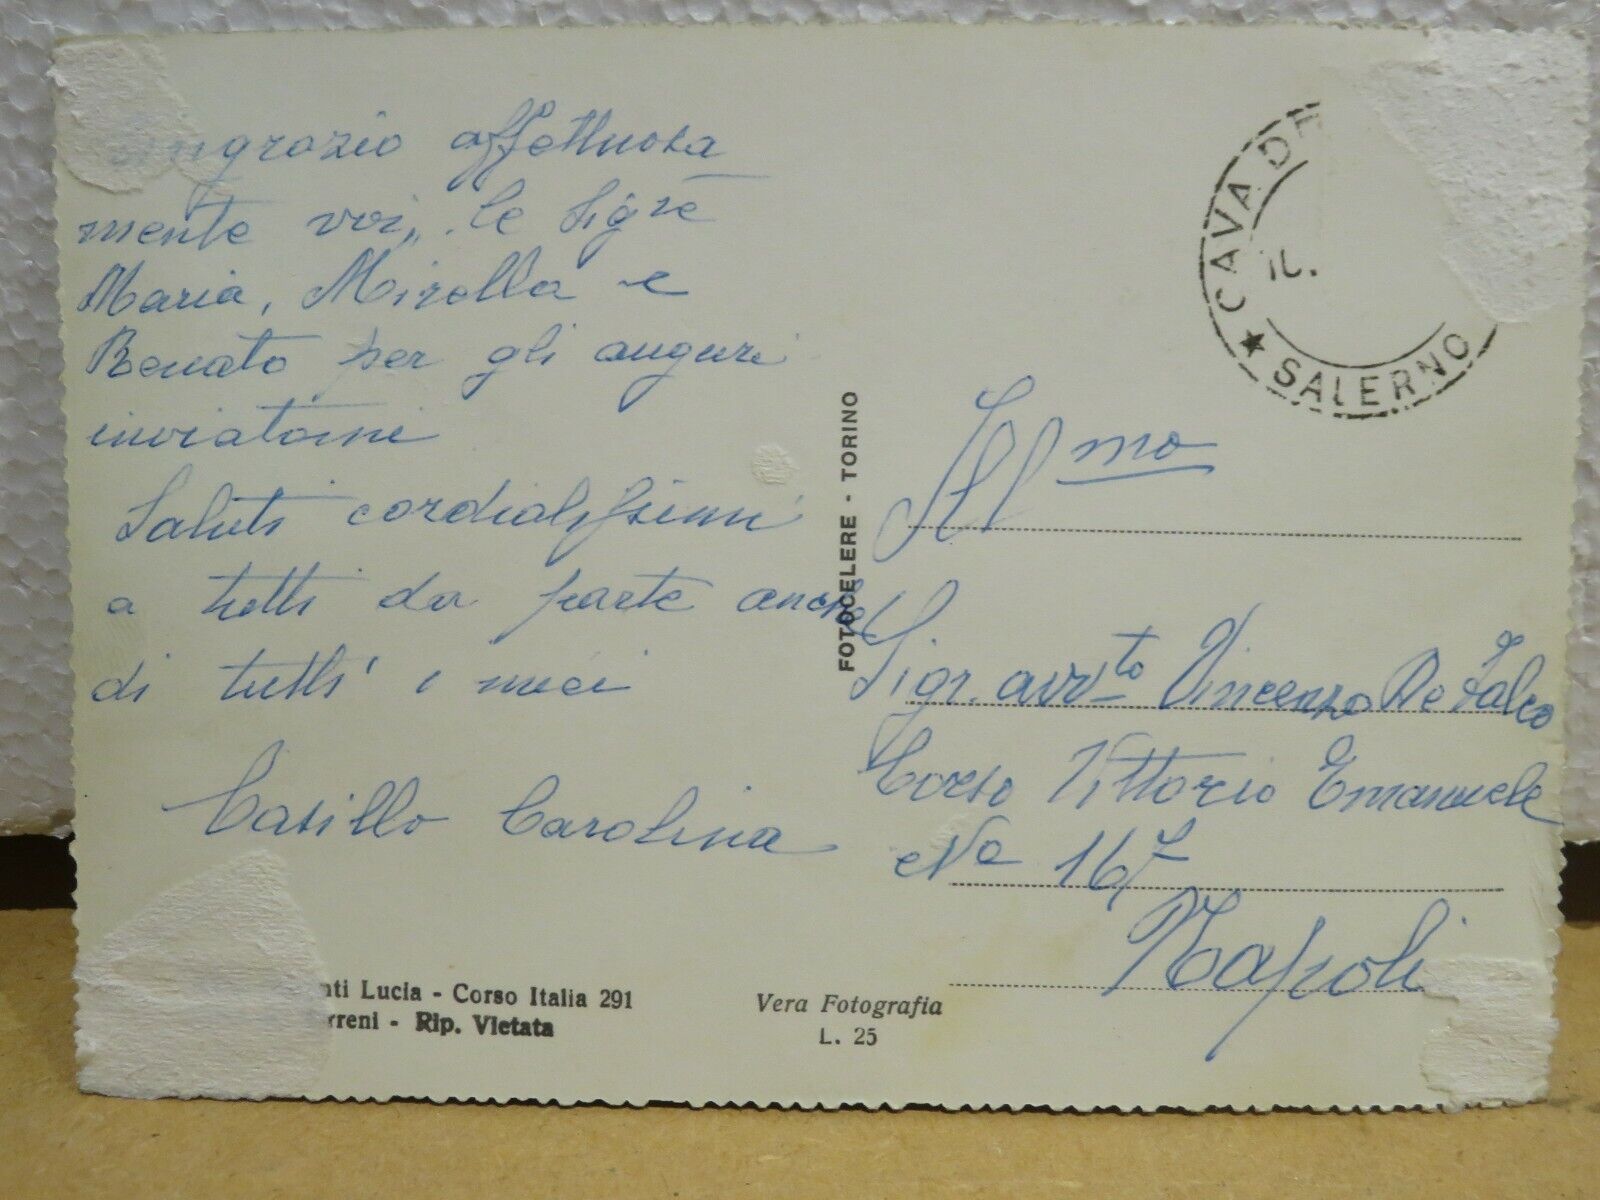 ingrazio affettuosa
mente voi, le Sig.re
Maria, Mirella e
Renato per gli auguri
inviatomi
Saluti cordialissimi
a tutti da parte anche
di tutti i miei
Casillo Carolina
nti Lucia - Corso Italia 291
rreni - Rip. Vietata
Vera Fotografia
L. 25
FOTOCELERE - TORINO
CAVA DE
SALERNO
Ill mo
Sigr. avv.to Vincenzo De Falco
Corso Vittorio Emanuele
No 167
Napoli